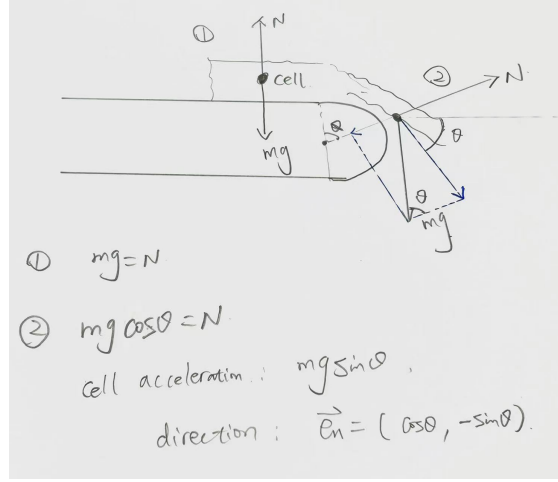 ①
N
cell
mg
②
N
θ
θ
θ
mg
① mg=N
② mg cosθ = N.
cell acceleration : mg sinθ.
direction : e⃗n = ( cosθ, -sinθ).